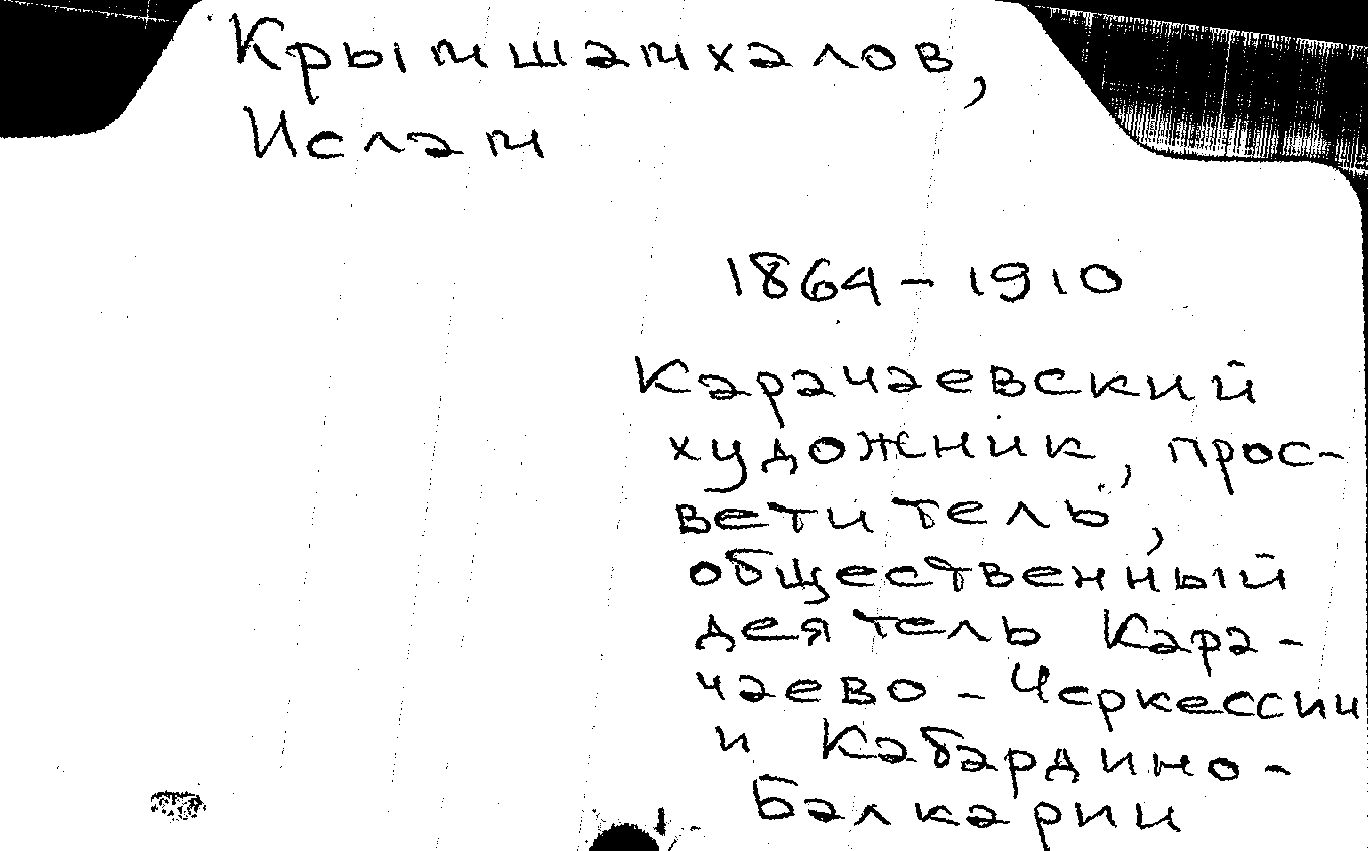 Крымшамхалов,
Ислам
1864-1910
Карачаевский
художник, прос-
ветитель,
общественный
деятель Кара-
чаево-Черкессии
и Кабардино-
Балкарии